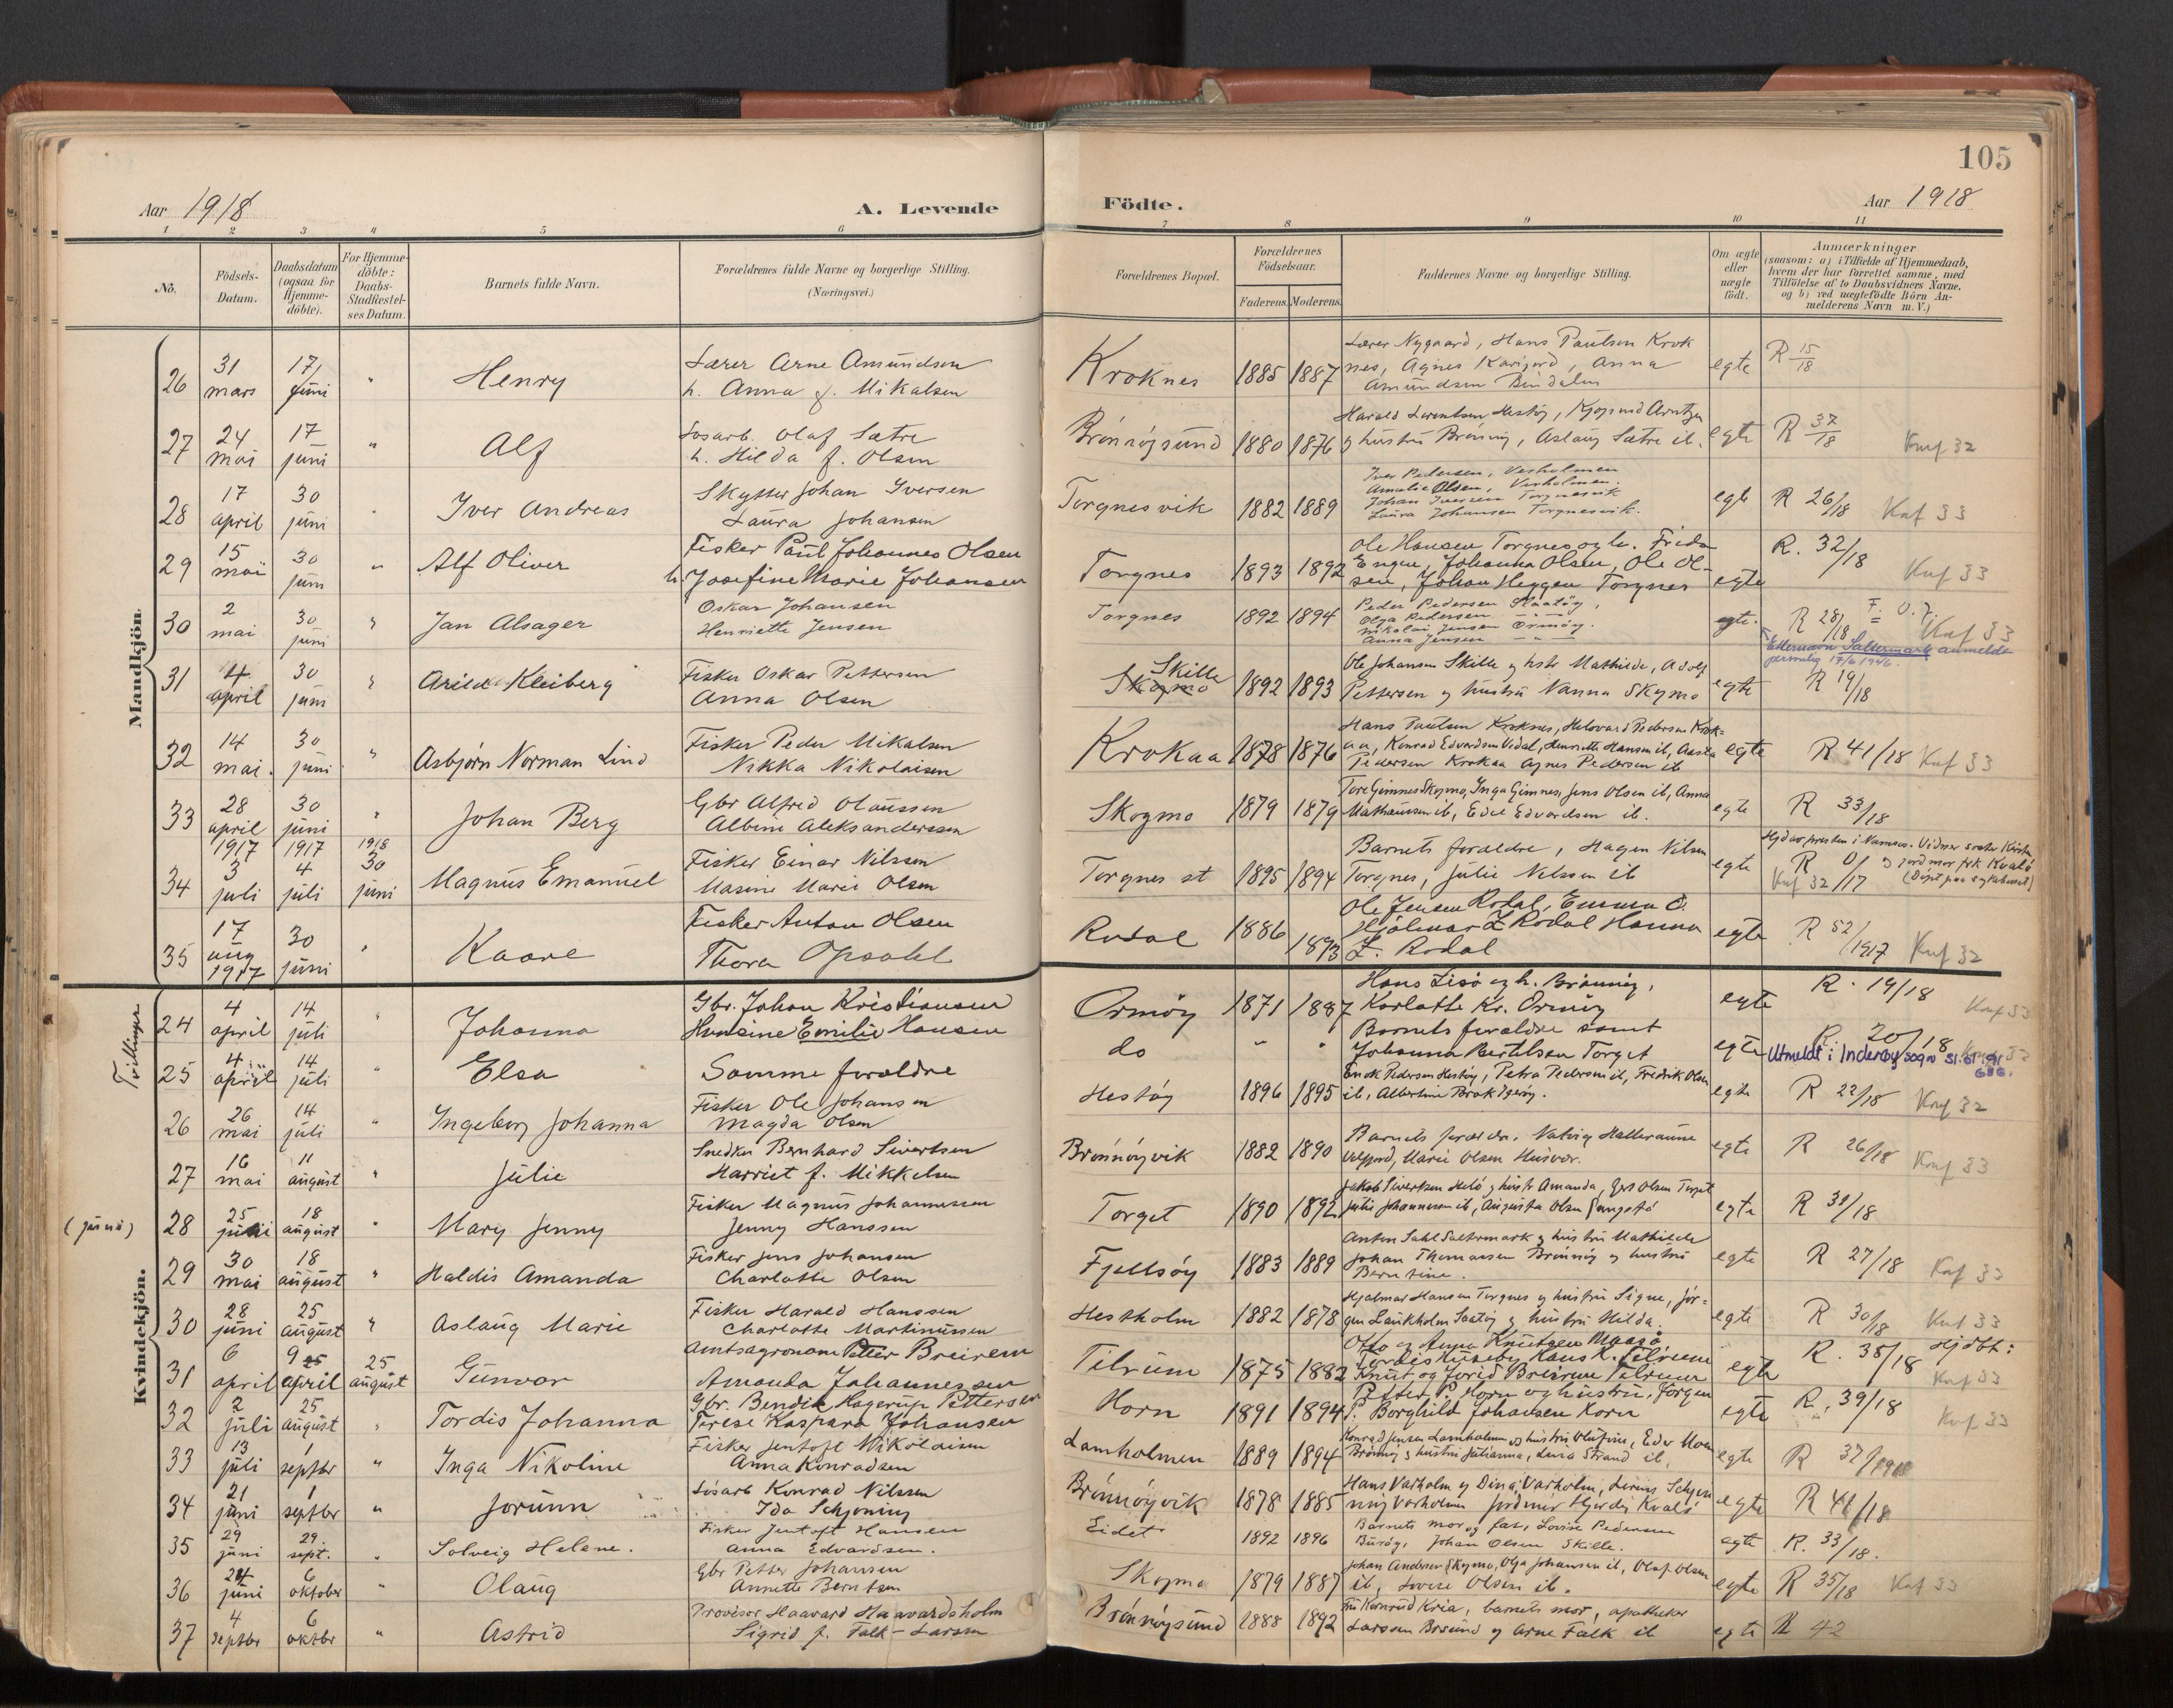 105
Aar 1918
A. Levende
Födte.
Aar 1918
1 2 3 4 5 6 7 8 9 10 11
No.
Födsels-Datum.
Daabsdatum (ogsaa for Hjemme-döbte).
For Hjemme-döbte: Daabs-Stadfæstel-ses Datum.
Barnets fulde Navn.
Forældrenes fulde Navne og borgerlige Stilling.
(Næringsvei.)
Forældrenes Bopæl.
Forældrenes Födselsaar.
Faderens. Moderens.
Faddernes Navne og borgerlige Stilling.
Om ægte eller uægte födt.
Anmærkninger
(saasom: a) i Tilfælde af Hjemmedaab,
hvem der har forrettet samme, med
Tilföielse af to Daabsvidners Navne,
og b) ved uægtefödte Börn An-
melderens Navn m. V.)
Mandkjön.
26 31 mars 17/ juni " Henry Lærer Arne Amundsen
h. Anna f. Mikalsen
Kroknes 1885 1887 Lærer Nygaard, Hans Paulsen Krok
nes, Agnes, Anna
Amundsen Bindalen
egte R 15/18
27 24 mai 17 juni " Alf Løsarb. Olaf Sætre
h. Hilda f. Olsen
Brønnøysund 1880 1876 Harald Lorentsen Hestøy,
g hustru Brønnøy, Aslaug Sætre ib.
egte R 37/18 Knf 32
28 17 april 30 juni " Iver Andreas Skytter Johan Iversen
Laura Johansen
Torgnesvik 1882 1889 Iver Pedersen, Verholmen
Amalie Olsen, Verholmen.
Johan Iversen Torgnesvik
Laura Johansen Torgnesvik.
egte R 26/18 Knf 33
29 15 mai 30 juni " Alf Oliver Fisker Paul Johannes Olsen
h. Josefine Marie Johansen
Torgnes 1893 1892 Ole Hansen Torgnes og h. Frida
Engen, Johanna Olsen, Ole Ol-
sen, Johan Heggen Torgnes
egte R. 32/18 Knf 33
30 2 mai 30 juni " Jan Alsager Oskar Johansen
Henriette Jensen
Torgnes 1892 1894 Peder Pedersen Slaatøy,
Olga Pedersen
Nikolai Jensen Ormøy.
Anna Jensen — " —
egte. R 28/18 F. O. J. Knf 33
Etternavn Saltermark anmeldt
personlig 17/6 1946.
31 4 april 30 juni " Arild Kleiberg Fisker Oskar Pettersen
Anna Olsen
Skille
Skogmo 1892 1893 Ole Johansen Skille og hstr Mathilde, Adolf
Pettersen g hustru Nanna Skogmo
egte R 19/18
32 14 mai. 30 juni " Asbjørn Norman Lind Fisker Peder Mikalsen
Nikka Nikolaisen
Krokaa 1878 1876 Hans Paulsen Kroknes, Pedersen Krok=
aa, Konrad Edvardsen Vedal, Henriette Hansen ib, Aasta
Pedersen Krokaa Agnes Pedersen ib
egte R 41/18 Knf 33
33 28 april 30 juni " Johan Berg Gbr Alfred Olaussen
Albine Aleksandersen
Skogmo 1879 1879 Tore Gimnes Skogmo, Inga Gimnes, Jens Olsen ib, Anna
Mathausen ib, Edel Edvardsen ib.
egte R 33/18
34 1917 3 juli 1917 4 juli 1918 30 juni Magnus Emanuel Fisker Einar Nilssen
Marine Marie Olsen
Torgnes st 1895 1894 Barnets forældre, Hagen Nilsen
Torgnes, Julie Nilssen ib
egte Hjd av presten i Namsos. Vidner Kirsten
R 0/17 g jordmor frk Kvalø
Knf 32 (Døpt paa sykehuset)
35 17 aug 1917 30 juni " Kaare Fisker Anton Olsen
Thora Opsahl
Rodal 1886 1893 Ole Jensen Rodal, Emma O.
Hjalmar Z Rodal Hanna
Z. Rodal
egte R 52/1917 Knf 32
Kvindekjön.
Tvillinger
24 4 april 14 juli " Johanna Gbr. Johan Kristiansen
Hansine Emilie Hansen
Ormøy 1871 1887 Hans Lisø og h. Brønnøy,
Karlotte Kr. Ormøy
egte R. 19/18 Knf 33
25 4 april 14 juli Elsa Samme forældre
do " " Barnets foreldre samt
Johanna Bertelsen Torget
egte R. 20/18
Utmeldt i Inderøy sogn
26 26 mai 14 juli " Ingeborg Johanna Fisker Ole Johansen
Magda Olsen
Hestøy 1896 1895 Enok Pedersen Hestøy, Petra Pedersen ib, Fredrik Olsen
ib, Albertine Brækigerøy.
egte R 22/18 Knf 32
27 16 mai 11 august " Julie Snedker Bernhard Sivertsen
Harriet f. Mikkelsen
Brønnøyvik 1882 1890 Barnets forældre, Halleraune
Velfjord, Marie Olsen Husvær.
egte R 26/18 Knf 33
(juni) 28 25 juni 18 august " Mary Jenny Fisker Magnus Johannessen
Jenny Hanssen
Torget 1890 1892 Jakob Sivertsen g hustr Amanda, Olsen Torget
Julie Johannesen ib, Augusta Olsen
egte R 31/18
29 30 mai 18 august " Haldis Amanda Fisker Jens Johansen
Charlotte Olsen
Fjellsøy 1883 1889 Anton Dahl Saltermark g hustru Mathilde
Johan Thomassen Brønnøy g hustru
Berntine.
egte R 27/18 Knf 33
30 28 juni 25 august " Aslaug Marie Fisker Harald Hanssen
Charlotte Martinussen
Hestholm 1882 1878 Hjalmar Hansen Torgnes g hustru Signe, Jør=
gen Laukholm g hustru Hilda.
egte R 30/18 Knf 33
31 6 april 9 april 25 august Gunvor Amtsagronom Petter Breirem
Amanda Johannessen
Tilrum 1875 1882 Otto og Anna Knutzen Maasø
Tordis Huseby, Hans K. Tilrum
Knut og Jorid Breirem Tilrum
egte R. 38/18 Hjdbt: Knf 33
32 2 juli 25 august " Tordis Johanna Gbr. Bendik Hagerup Pettersen
Terese Kaspara Johansen
Horn 1891 1894 Petter P. Horn og hustru, Jørgen
P. Borghild Johansen Horn
egte R. 39/18 Knf 33
33 13 juli 1 septbr " Inga Nikoline Fisker Jentoft Nikolaisen
Anna Konradsen
Lamholmen 1889 1894 Konrad Jensen Lamholmen og hustru Olufine, Edv Moen
Brønnøy g hustru Julianna, Strand ib,
egte R 37/1918
34 21 juni 1 septbr " Jorunn Løsarb Konrad Nilssen
Ida Schjøning
Brønnøyvik 1878 1885 Hans Varholm g Dina Varholm, Schjøn
ning Varholmen Jordmor Hjørdis Kvalø
egte R 41/18
35 29 juni 29. sept. " Solveig Helene. Fisker Jentoft Hansen
Anna Edvardsen.
Eidet 1892 1896 Barnets mor og far, Lovise Pedersen
Burøy, Johan Olsen Skille.
egte R. 33/18.
36 24 juni 6 oktober " Olaug Gbr Petter Johansen
Annette Berntsen
Skogmo 1879 1887 Johan Andersen Skogmo, Olga Johansen ib, Olaf Olsen
ib, Lovise Olsen ib.
egte R 35/18 Knf 33
37 4 septbr 6 oktbr " Astrid Provisor Haavard Haavardsholm
Sigrid f. Falk-Larssen
Brønnøysund 1888 1892 Fru Konrud Kria, barnets mor, apotheker
Larssen Brsund g Arne Falk ib
egte R 42